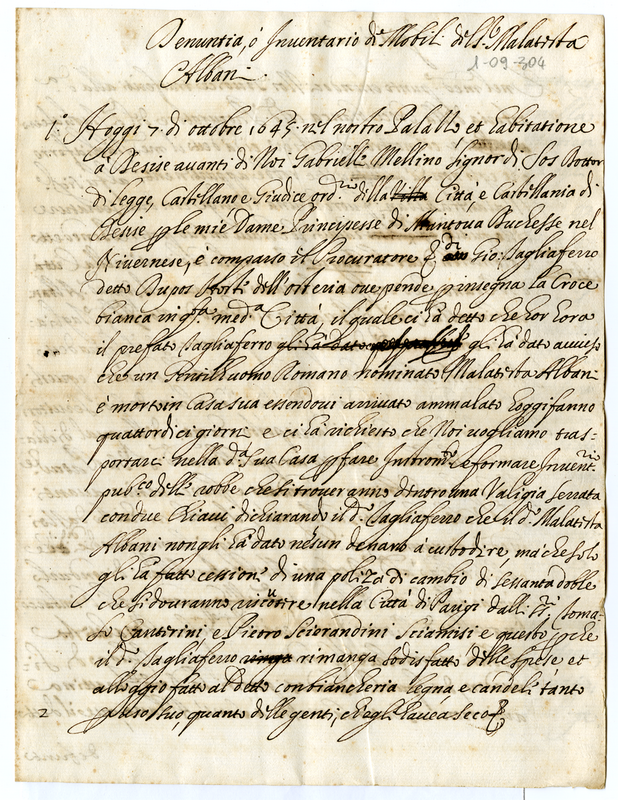 Denuntia, ò Inventario de Mobili del Sr. Malatesta
Albani.
1-09-304
1.° Hoggi 7. di ottobre 1645. nel nostro Palazzo et habitatione
à Desise avanti di Noi Gabriello Mellino Signor di Sos Dottor
di legge, Castellano e Giudice ord.rio della Città e Castellania di
Desise p le mie Dame Principesse di Mantova Duchesse nel
Nivernese, è comparso il Procuratore di Gio: Tagliaferro
detto Dupos dell'osteria ove pende p insegna la Croce
bianca in q.sta med.a Città, il quale ci hà detto che hor hora
il prefato Tagliaferro gli hà dato gli hà dato avviso
che un Gentilhuomo Romano nominato Malatesta Albani
è morto in Casa sua essendovi arrivato ammalato hoggi fanno
quattordici giorni e ci hà richiesto che Noi vogliamo tras-
portarci nella d.a Sua Casa p fare Instrom.to e formare Invent.rio
pub.co delle robbe che si troveranno dentro una Valigia serrata
con due Chiavi, dichiarando il d.° Tagliaferro che il d.° Malatesta
Albani non gli hà dato nesun denaro à custodire, mà che solo
gli hà fatto cessione di una poliza di cambio di sessanta doble
che si dovranno riscuotere nella Città di Parigi dalli SS.ri Toma-
so Cantarini, e Pietro Sciorandini Sciamisi e questo p che
il d.° Tagliaferro rimanga sodisfatto delle spese et
alloggio fatto al Detto con biancheria legna, e candele tanto
p uso suo, quanto delle genti, ch'egli havea seco
2